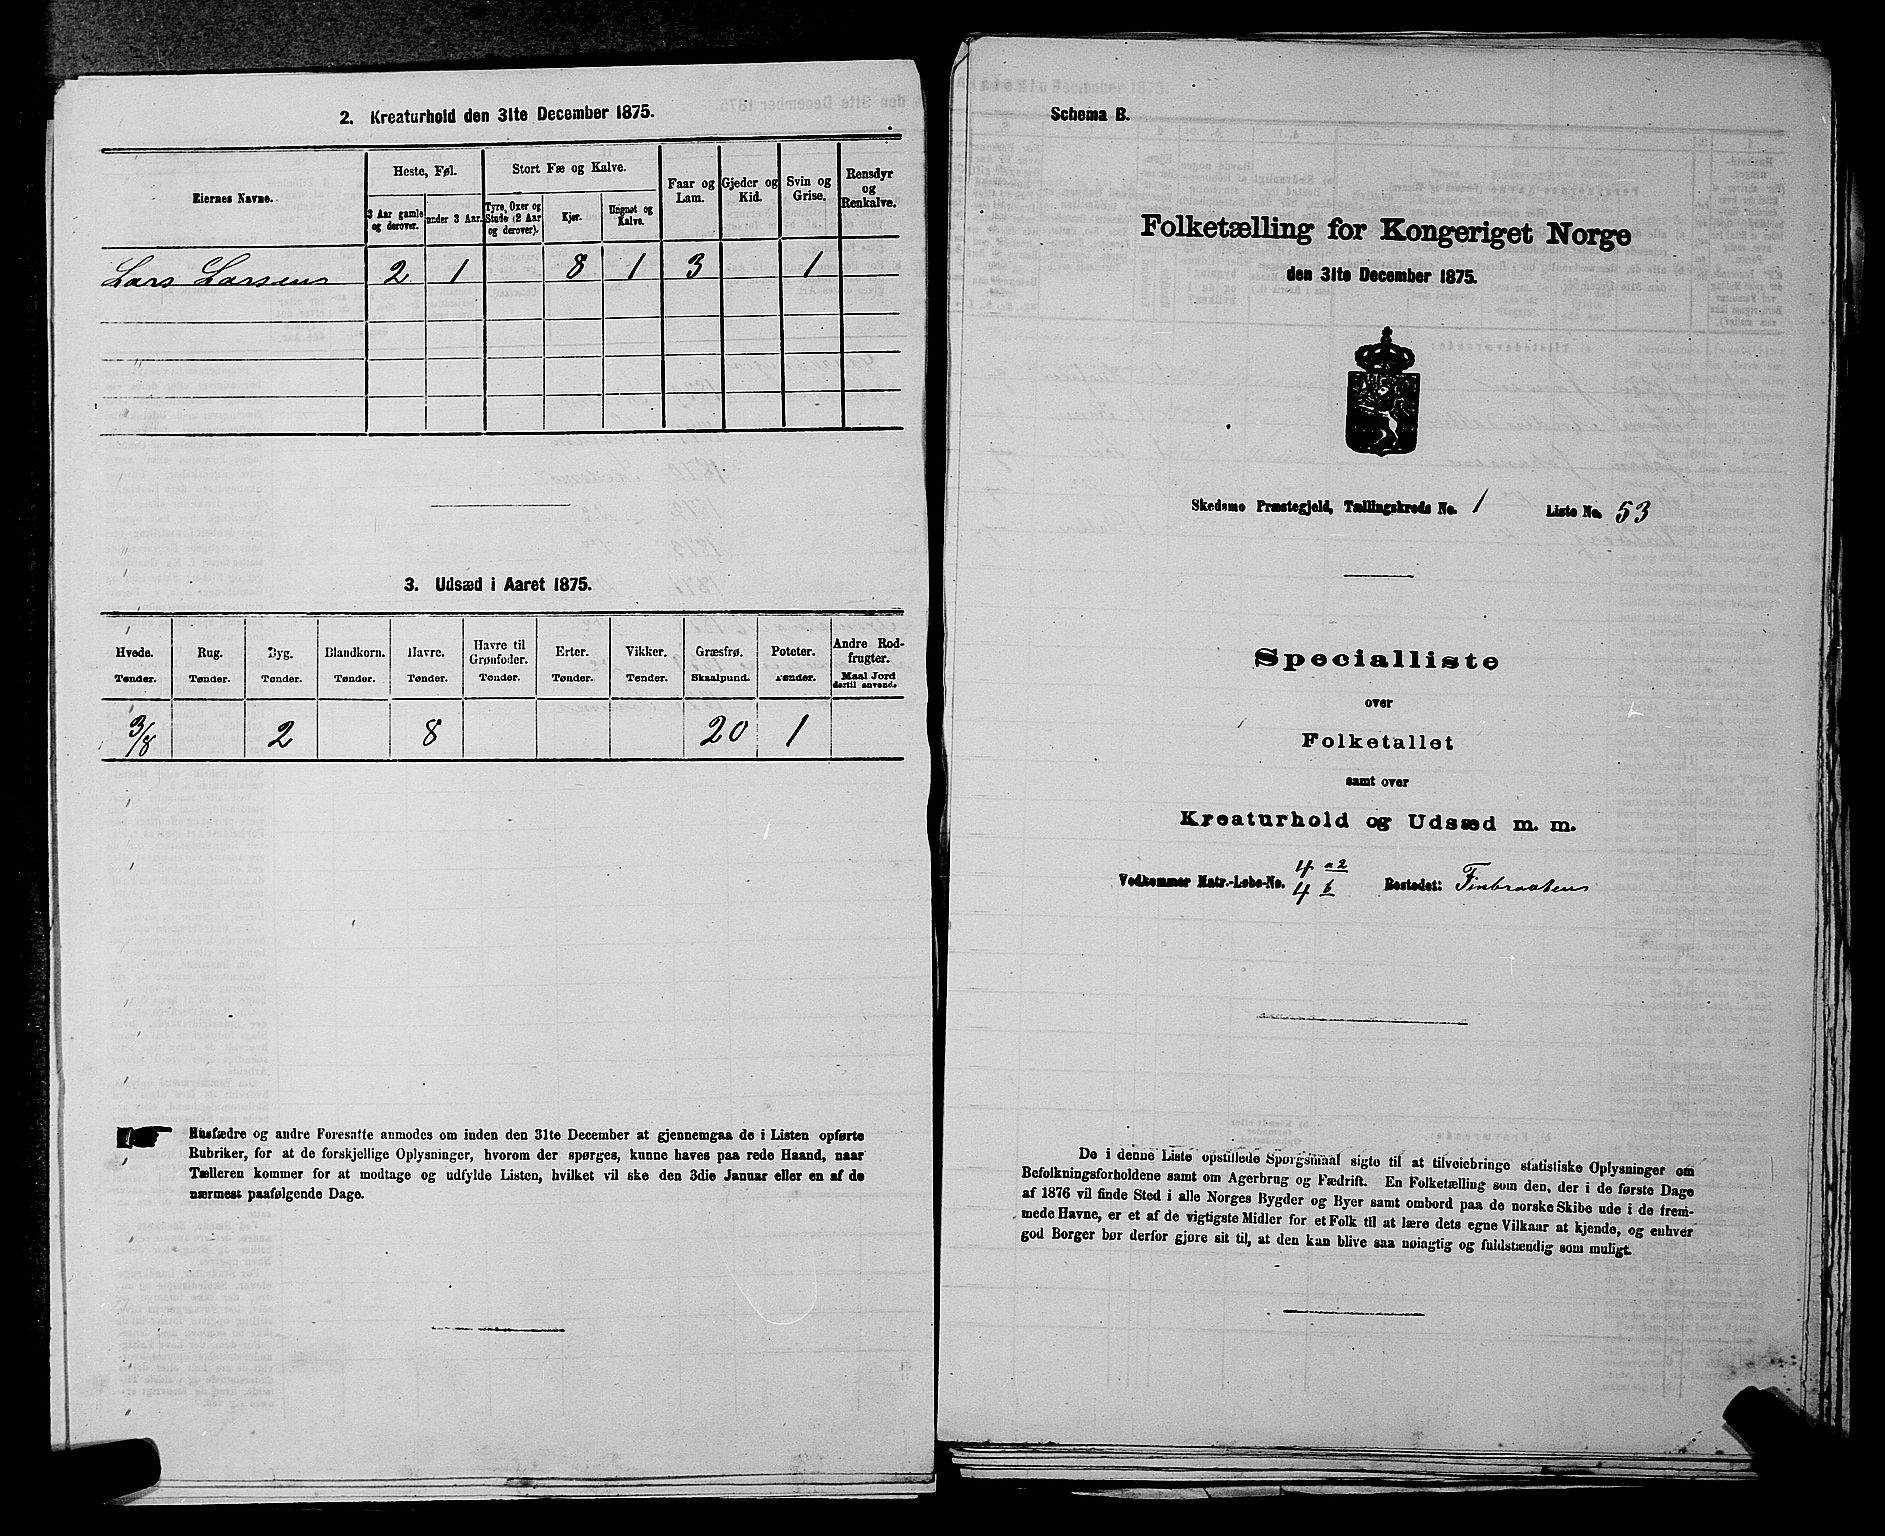 2. Kreaturhold den 31te December 1875.
Eiernes Navne.
Heste, Føl.
3 Aar gamle og derover.
under 3 Aar.
Stort Fæ og Kalve.
Tyre, Oxer og Stude (2 Aar og derover).
Kjør.
Ungnøt og Kalve.
Faar og Lam.
Gjeder og Kid.
Svin og Grise.
Rensdyr og Renkalve.
Lars Larsen 2 1 8 1 3 1
3. Udsæd i Aaret 1875.
Hvede. Rug. Byg. Blandkorn. Havre. Havre til Grønfoder. Erter. Vikker. Græsfrø. Poteter. Andre Rodfrugter.
Tønder. Tønder. Tønder. Tønder. Tønder. Tønder. Tønder. Tønder. Skaalpund. Tønder. Maal Jord dertil anvendt.
3/8 2 8 20 1
Husfædre og andre Foresatte anmodes om inden den 31te December at gjennemgaa de i Listen opførte
Rubriker, for at de forskjellige Oplysninger, hvorom der spørges, kunne haves paa rede Haand, naar
Tælleren kommer for at modtage og udfylde Listen, hvilket vil ske den 3die Januar eller en af de
nærmest paafølgende Dage.
Schema B.
Folketælling for Kongeriget Norge
den 31te December 1875.
Skedsmo Præstegjeld, Tællingskreds No. 1 Liste No. 53
Specialliste
over
Folketallet
samt over
Kreaturhold og Udsæd m. m.
Vedkommer Matr.-Løbe-No. 4 a2 4 b Bostedet: Finbraaten
De i denne Liste opstillede Spørgsmaal sigte til at tilveiebringe statistiske Oplysninger om
Befolkningsforholdene samt om Agerbrug og Fædrift. En Folketælling som den, der i de første Dage
af 1876 vil finde Sted i alle Norges Bygder og Byer samt ombord paa de norske Skibe ude i de frem-
mede Havne, er et af de vigtigste Midler for et Folk til at lære dets egne Vilkaar at kjende, og enhver
god Borger bør derfor gjøre sit til, at den kan blive saa nøiagtig og fuldstændig som muligt.